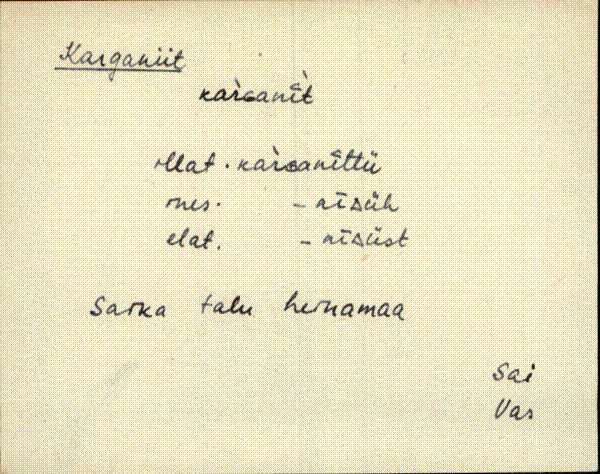 Karganiit
karGanīt
illat. karGanīttü
ines. - niDüh
elat. - niDüst
Saika talu heinamaa
Sai
Vas